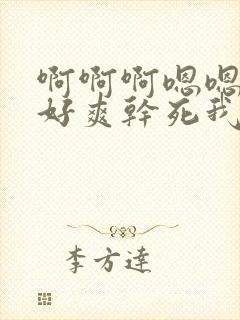 啊啊啊嗯嗯
好爽幹死我
李方達